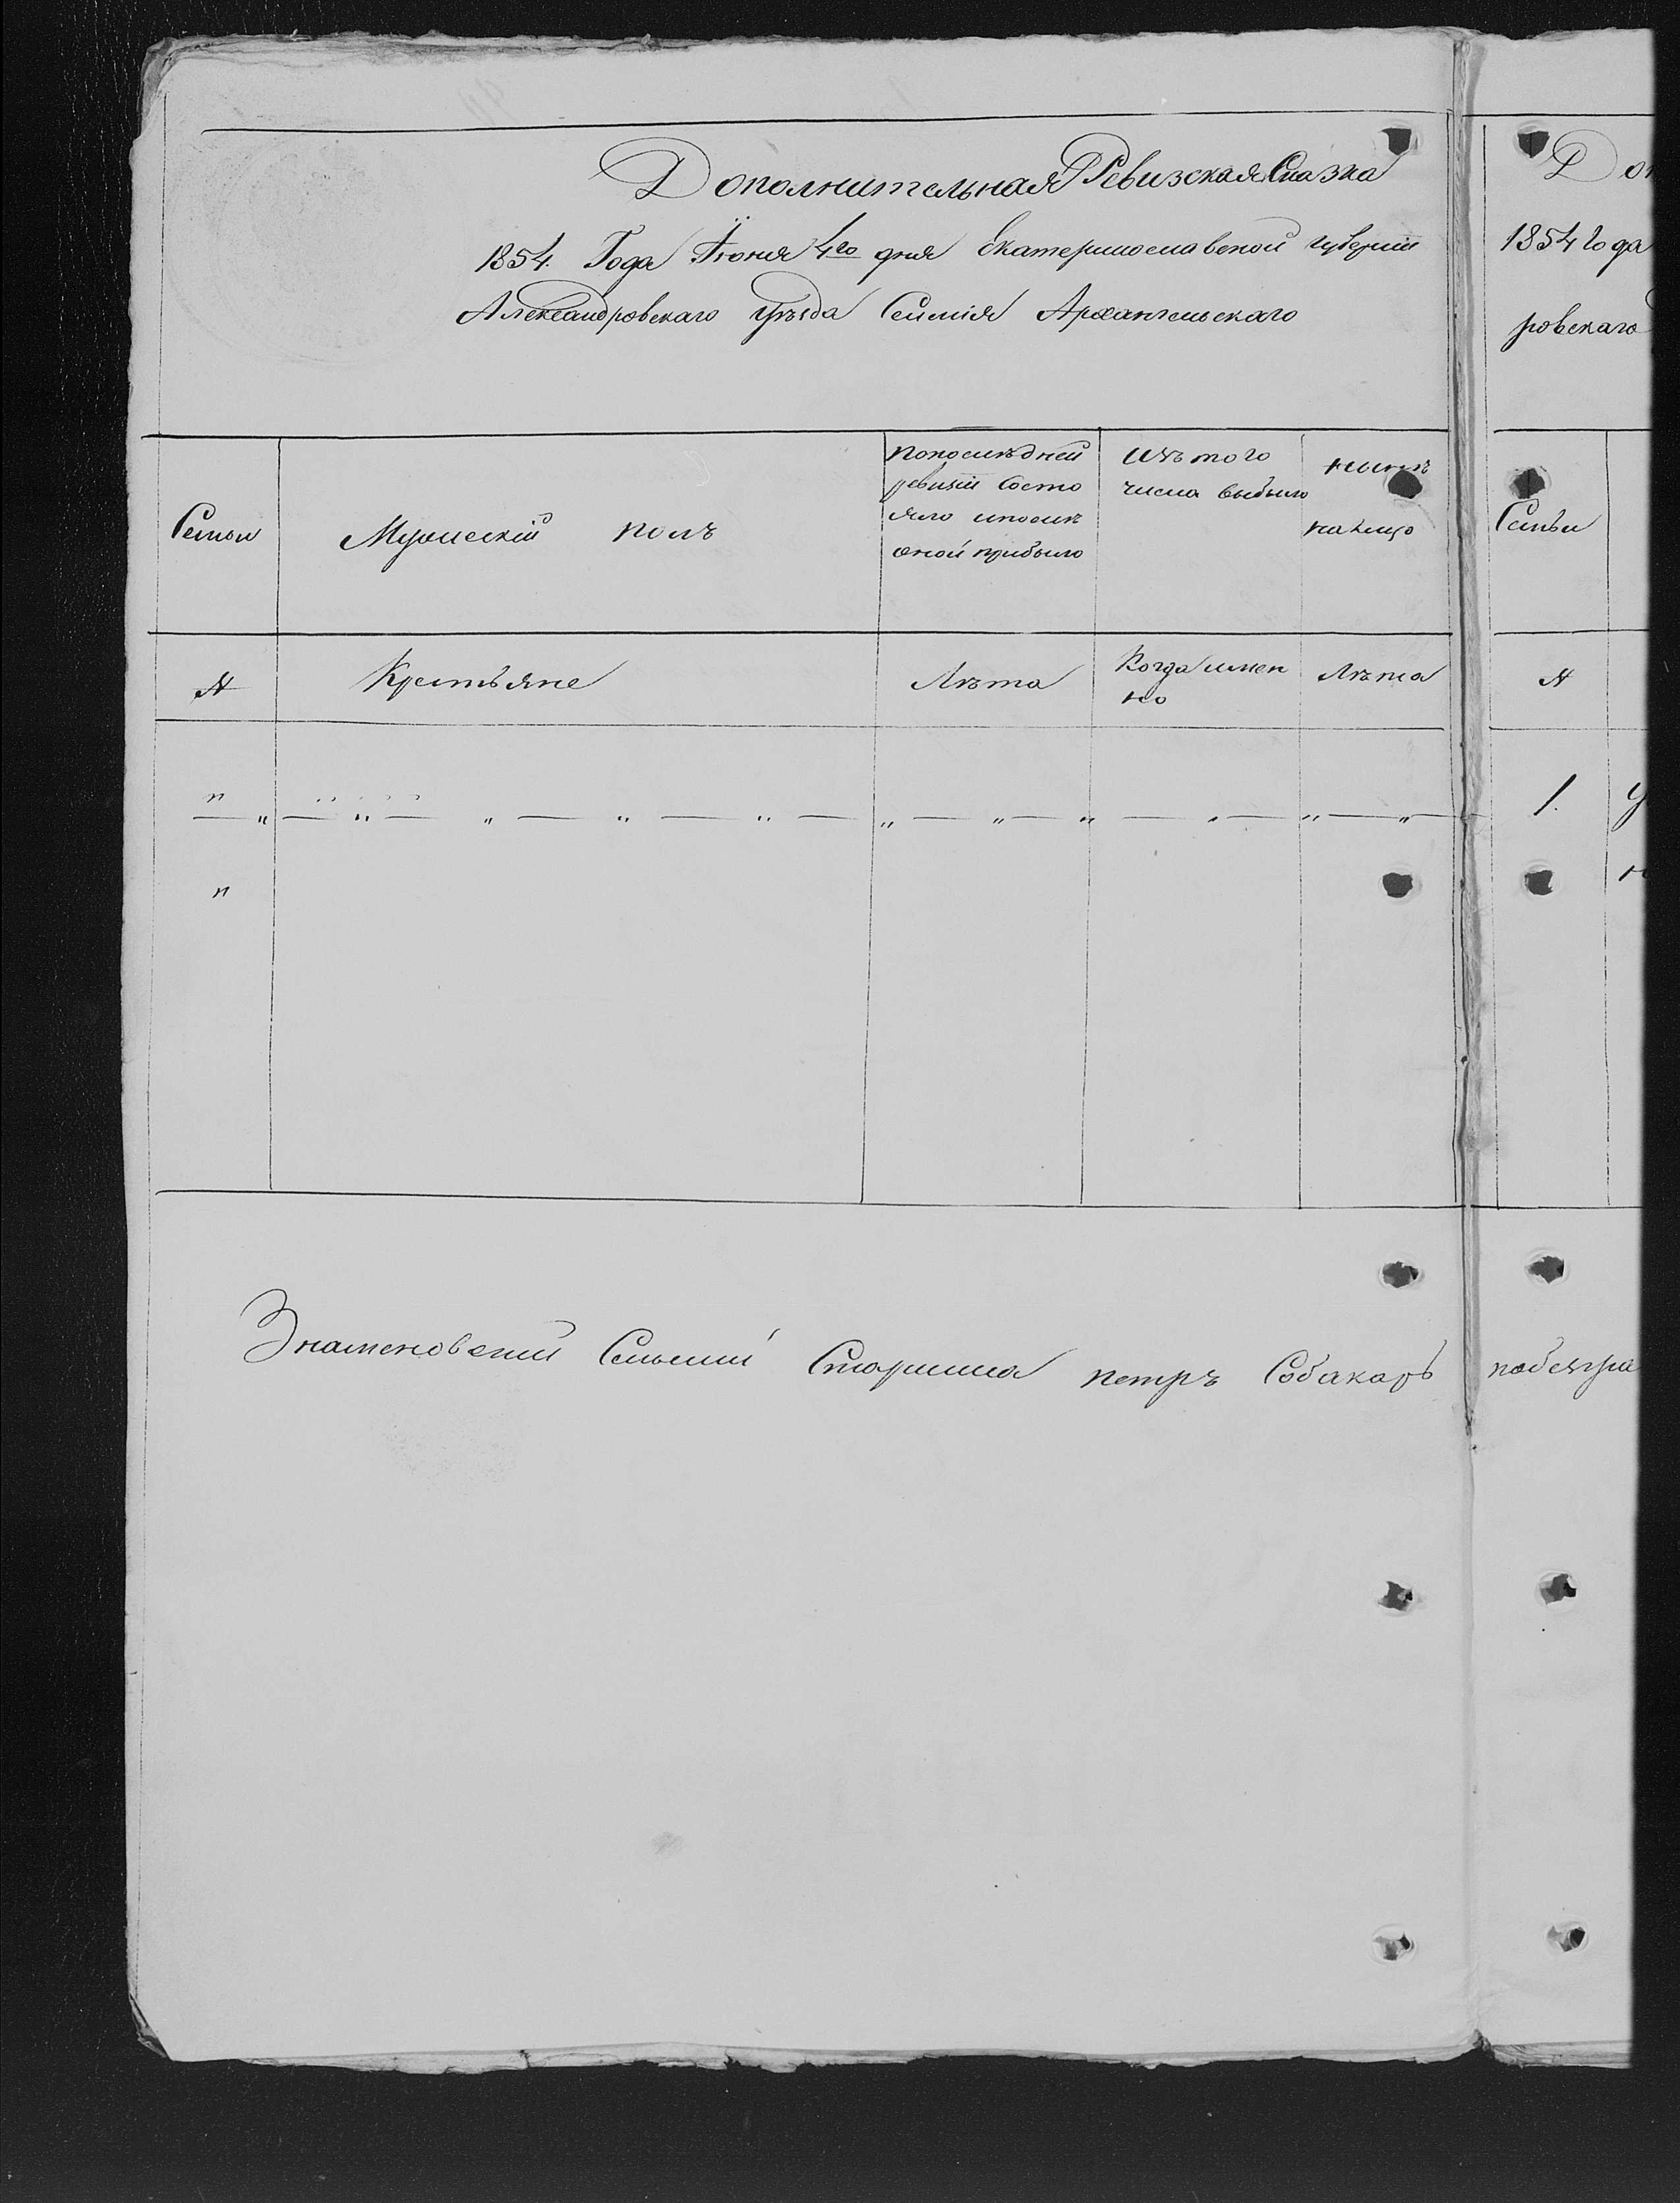 Дополнительная Ревизская Сказка
1854. Года Іюня 4го дня Екатеринославской губерніи
Александровскаго уѣзда Селенія Архангельскаго
Семьи
Мужескій полъ
Попослѣдней
ревизіи состо
яло ипослѣ
оной прибыло
Изъ того
числа выбыло
нынѣ
налицо
№
Крестьяне
Лѣта
Когда имен
но
Лѣта
" — " — " — " — " — " — " — " — " — " — " — "
"
Знаменовскій Сельскій Старшина петръ Собакарь
До
1854 Года
ровскаго
Семьи
№
1.